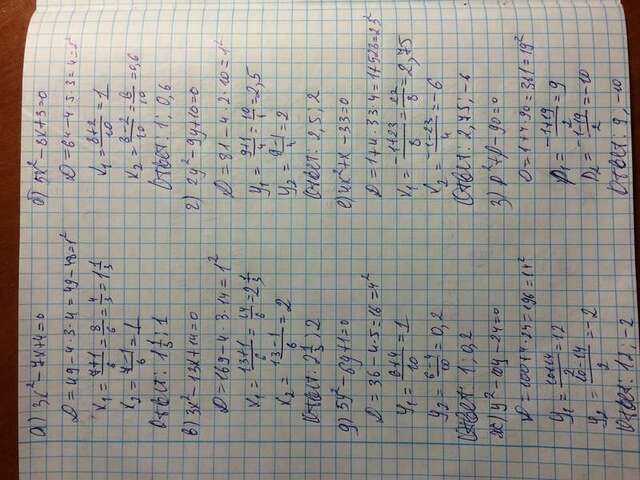 а) 3x² - 7x + 4 = 0
D = 49 - 4 · 3 · 4 = 49 - 48 = 1²
x₁ = (7+1)/6 = 8/6 = 4/3 = 1 1/3
x₂ = (7-1)/6 = 1
Ответ: 1 1/3 ; 1
в) 3x² - 13x + 14 = 0
D = 169 - 4 · 3 · 14 = 1²
x₁ = (13+1)/6 = 14/6 = 2 1/3
x₂ = (13-1)/6 = 2
Ответ: 2 1/3 ; 2
д) 5y² - 6y + 1 = 0
D = 36 - 4 · 5 = 16 = 4²
y₁ = (6+4)/10 = 1
y₂ = (6-4)/10 = 0,2
Ответ: 1 ; 0,2
ж) y² - 10y - 24 = 0
D = 100 + 4 · 24 = 196 = 14²
y₁ = (10+14)/2 = 12
y₂ = (10-14)/2 = -2
Ответ: 12 ; -2
б) 5x² - 8x + 3 = 0
D = 64 - 4 · 5 · 3 = 4 = 2²
x₁ = (8+2)/10 = 1
x₂ = (8-2)/10 = 6/10 = 0,6
Ответ: 1 ; 0,6
г) 2y² - 9y + 10 = 0
D = 81 - 4 · 2 · 10 = 1²
y₁ = (9+1)/4 = 10/4 = 2,5
y₂ = (9-1)/4 = 2
Ответ: 2,5 ; 2
е) 4x² + x - 33 = 0
D = 1 + 4 · 33 · 4 = 1 + 528 = 23²
x₁ = (-1+23)/8 = 22/8 = 2,75
x₂ = (-1-23)/4 = -6
Ответ: 2,75 ; -6
з) p² + p - 90 = 0
D = 1 + 4 · 90 = 361 = 19²
p₁ = (-1+19)/2 = 9
p₂ = (-1-19)/2 = -10
Ответ: 9 ; -10